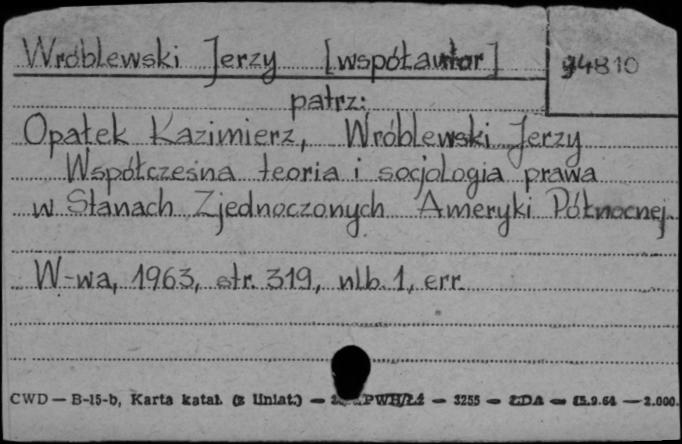 Wróblewski Jerzy [współautor]
94810
patrz:
Opałek Kazimierz, Wróblewski Jerzy
Współczesna teoria i socjologia prawa
w Stanach Zjednoczonych Ameryki Północnej.
W-wa, 1963, str. 319, nlb. 1, err.
CWD — B-15-b, Karta katal. (z liniat.) — ZPWH/Łź — 3255 — ŁDA — 15.9.64 — 2.000.